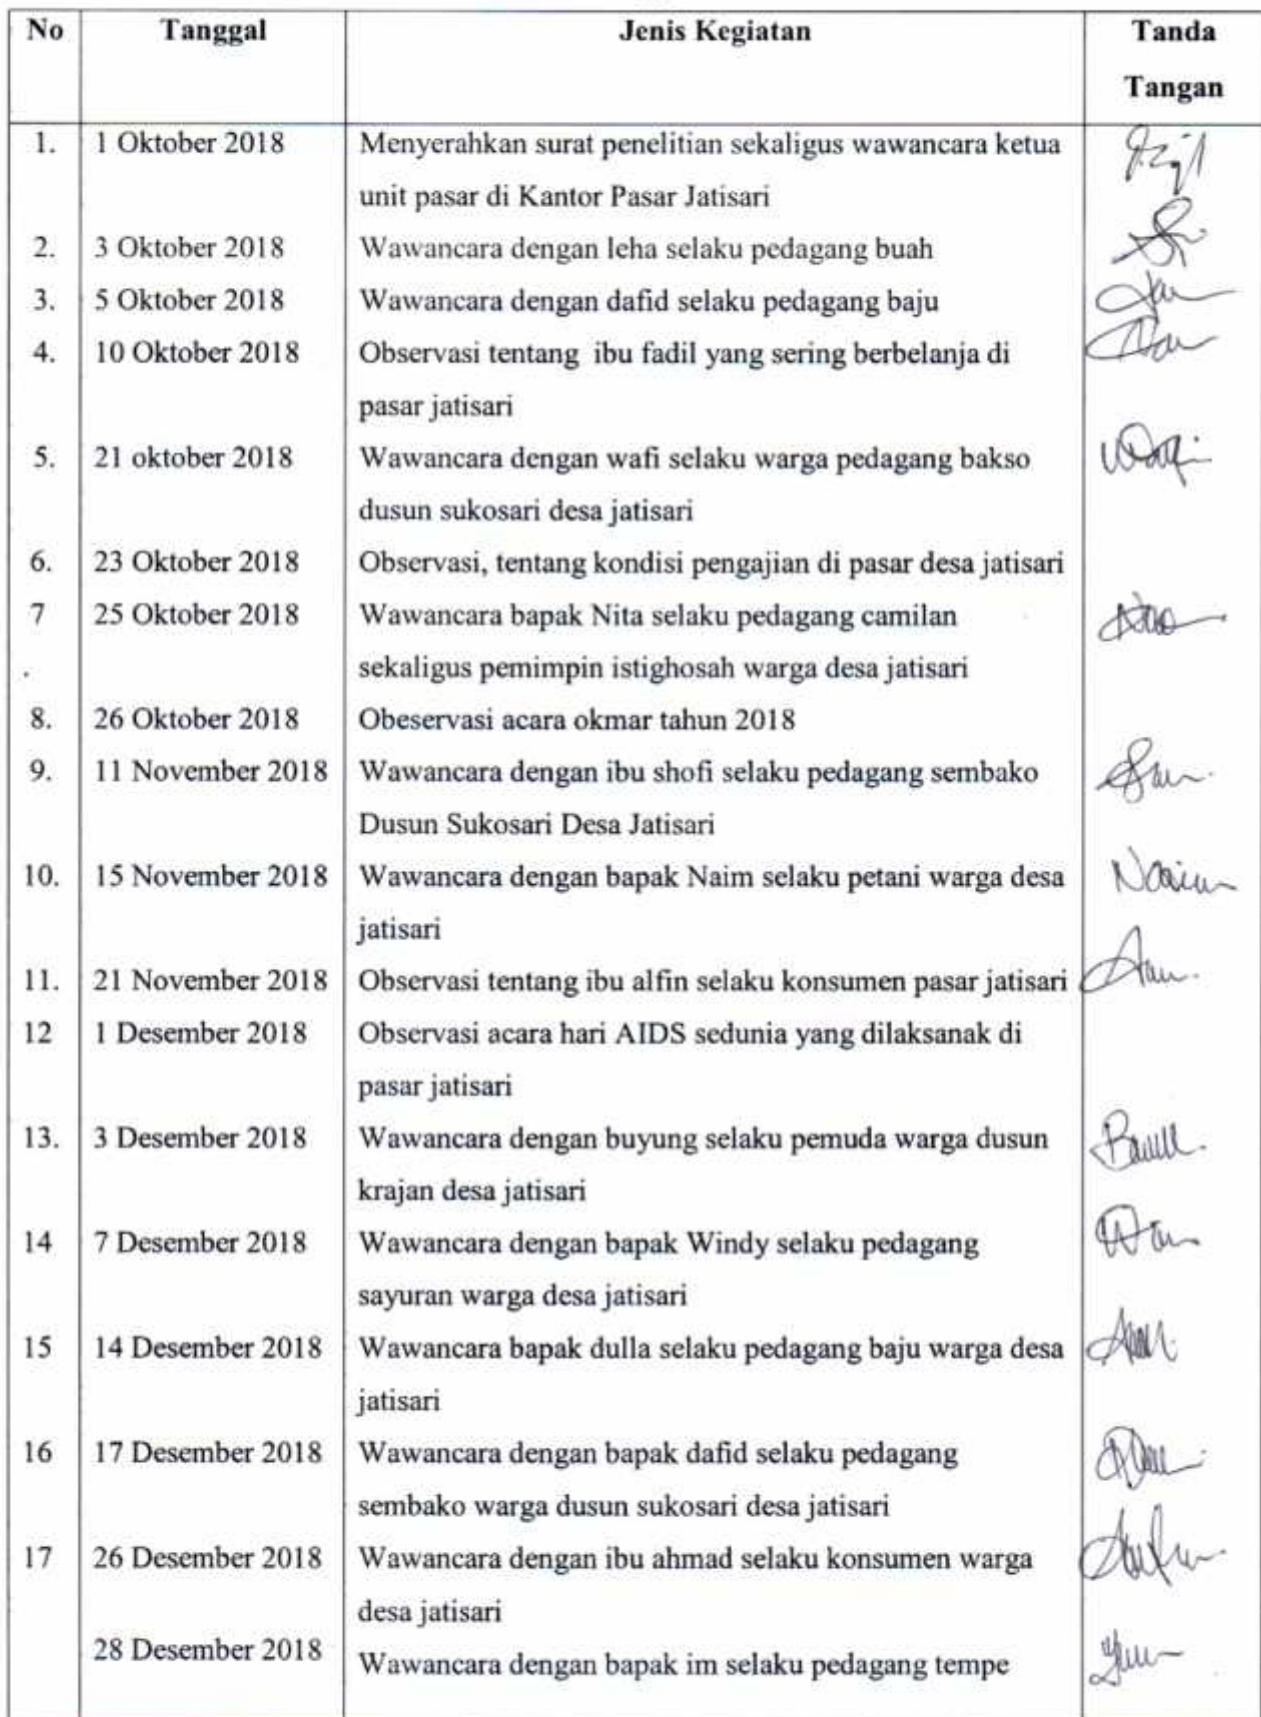 No Tanggal Jenis Kegiatan Tanda
Tangan
1. 1 Oktober 2018 Menyerahkan surat penelitian sekaligus wawancara ketua
unit pasar di Kantor Pasar Jatisari
2. 3 Oktober 2018 Wawancara dengan leha selaku pedagang buah
3. 5 Oktober 2018 Wawancara dengan dafid selaku pedagang baju
4. 10 Oktober 2018 Observasi tentang ibu fadil yang sering berbelanja di
pasar jatisari
5. 21 oktober 2018 Wawancara dengan wafi selaku warga pedagang bakso
dusun sukosari desa jatisari
6. 23 Oktober 2018 Observasi, tentang kondisi pengajian di pasar desa jatisari
7 25 Oktober 2018 Wawancara bapak Nita selaku pedagang camilan
. sekaligus pemimpin istighosah warga desa jatisari
8. 26 Oktober 2018 Obeservasi acara okmar tahun 2018
9. 11 November 2018 Wawancara dengan ibu shofi selaku pedagang sembako
Dusun Sukosari Desa Jatisari
10. 15 November 2018 Wawancara dengan bapak Naim selaku petani warga desa Naim
jatisari
11. 21 November 2018 Observasi tentang ibu alfin selaku konsumen pasar jatisari
12 1 Desember 2018 Observasi acara hari AIDS sedunia yang dilaksanak di
pasar jatisari
13. 3 Desember 2018 Wawancara dengan buyung selaku pemuda warga dusun
krajan desa jatisari
14 7 Desember 2018 Wawancara dengan bapak Windy selaku pedagang
sayuran warga desa jatisari
15 14 Desember 2018 Wawancara bapak dulla selaku pedagang baju warga desa
jatisari
16 17 Desember 2018 Wawancara dengan bapak dafid selaku pedagang
sembako warga dusun sukosari desa jatisari
17 26 Desember 2018 Wawancara dengan ibu ahmad selaku konsumen warga
desa jatisari
28 Desember 2018 Wawancara dengan bapak im selaku pedagang tempe